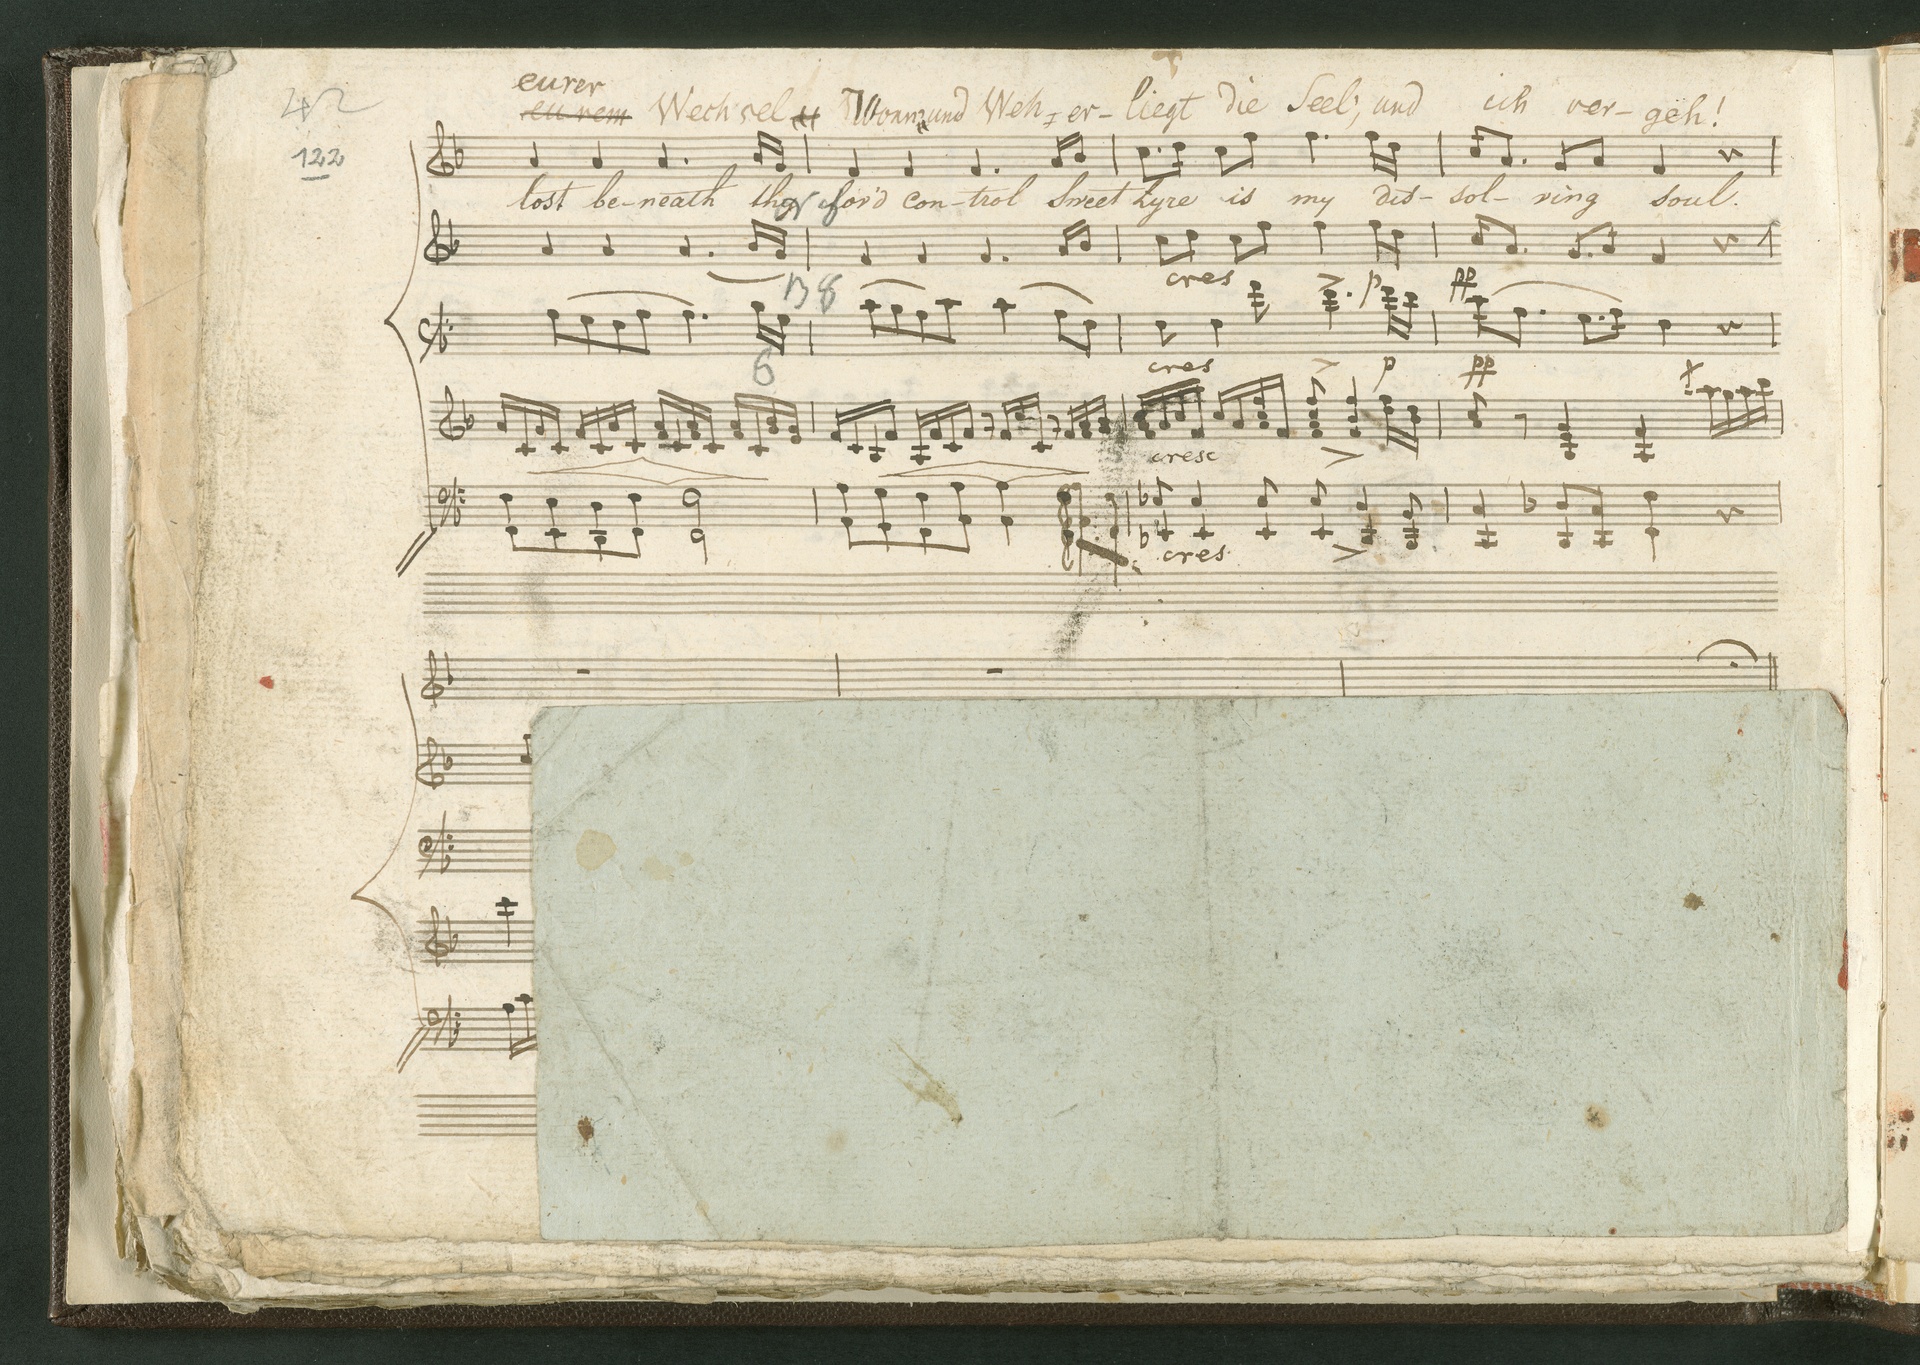 eurer
eurem Wechsel Wonn und Weh, er- liegt die Seel', und ich ver- geh!
122
lost be-neath thy forc'd con-trol Sweet Lyre is my dis- sol- ving soul.
cres > p pp
13 8
cres > p pp
6
cresc >
cres >